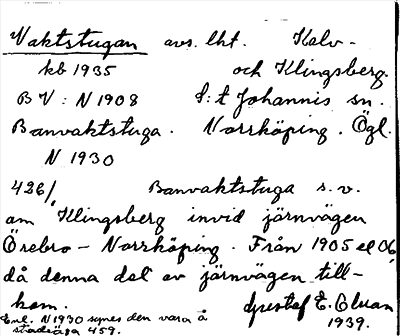 Vaktstugan avs. lht. Kalv-
kb 1935 och Klingsberg.
B V : N 1908 S:t Johannis sn.
Banvaktstuga. Norrköping. Ögl.
N 1930
426/ Banvaktstuga s.v.
om Klingsberg invid järnvägen
Örebro – Norrköping. Från 1905 el 06,
då denna del av järnvägen till-
kom. Gustaf E. Ekman
Enl. N 1930 synes den vara å 1939.
stadsäga 459.